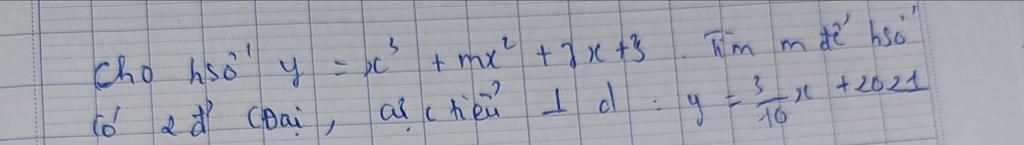 Cho hsố y = x³ + mx² + 7x + 3 . Tìm m để hsố
có 2 đ' CĐại, cực tiểu ⊥ d : y = 3/10 x + 2021